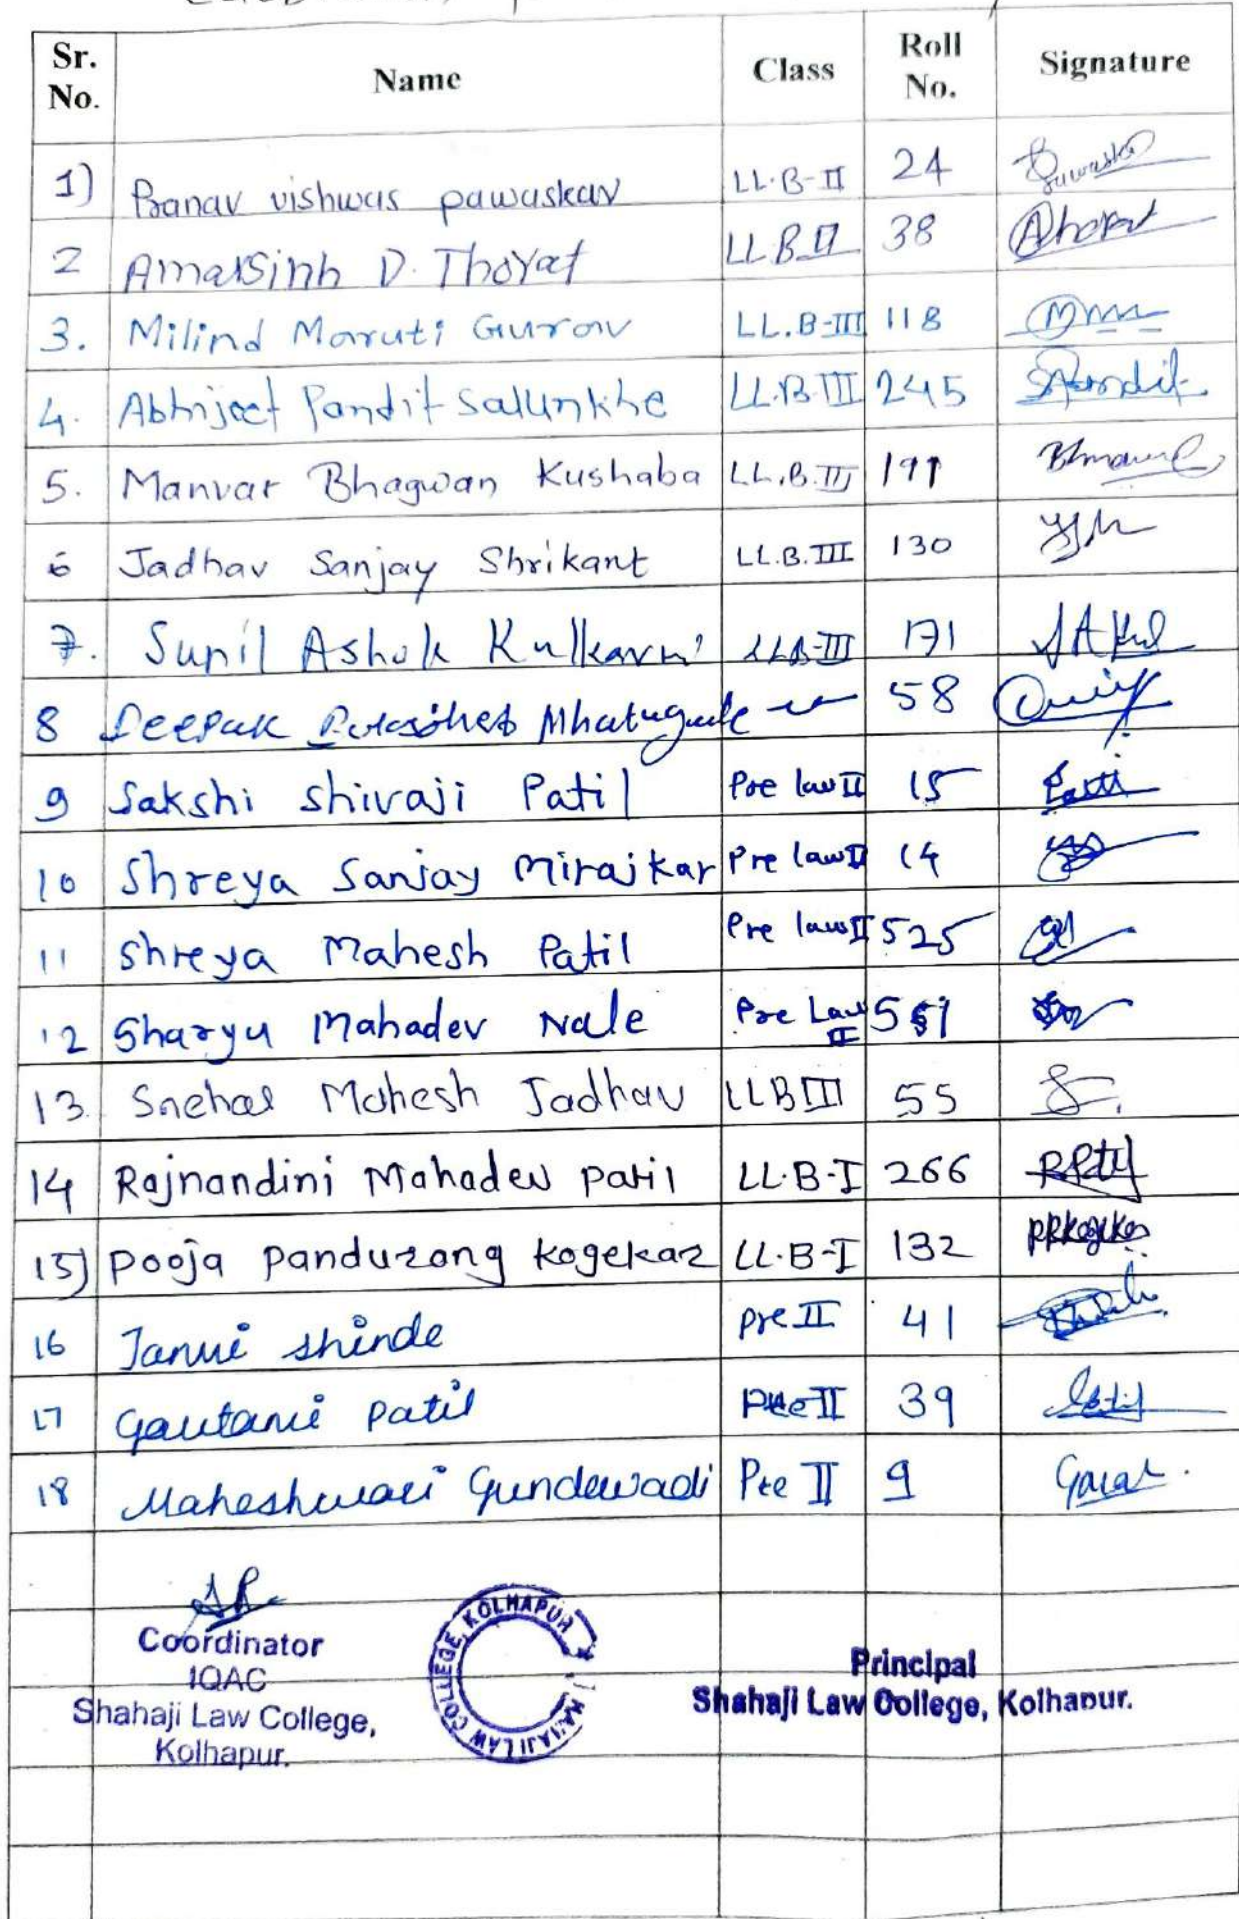 Sr. No. Name Class Roll No. Signature
1) Pranav vishwas pawaskar LL.B-II 24
2 Amarsinh D. Thorat LL.B II 38
3. Milind Maruti Gurav LL.B-III 118
4. Abhijeet Pandit Salunkhe LL.B.III 245
5. Manvar Bhagwan Kushaba LL.B.III 191
6 Jadhav Sanjay Shrikant LL.B.III 130
7. Sunil Ashok Kulkarni LLB-III 171
8 Deepak Mhatugade 58
9 Sakshi Shivaji Patil Pre law II 15
10 Shreya Sanjay Mirajkar Pre law II 14
11 Shreya Mahesh Patil Pre law II 525
12 Sharyu Mahadev Nale Pre Law II
13. Snehal Mahesh Jadhav LLB III 55
14 Rajnandini Mahadev patil LL.B-I 266
15) Pooja Pandurang Kogekar LL.B-I 132
16 Janvi Shinde pre II 41
17 Gautami Patil Pre II 39
18 Maheshwari Gundewadi Pre II 9
Coordinator
IQAC
Shahaji Law College,
Kolhapur.
SHAHAJI LAW COLLEGE, KOLHAPUR
Principal
Shahaji Law College, Kolhapur.